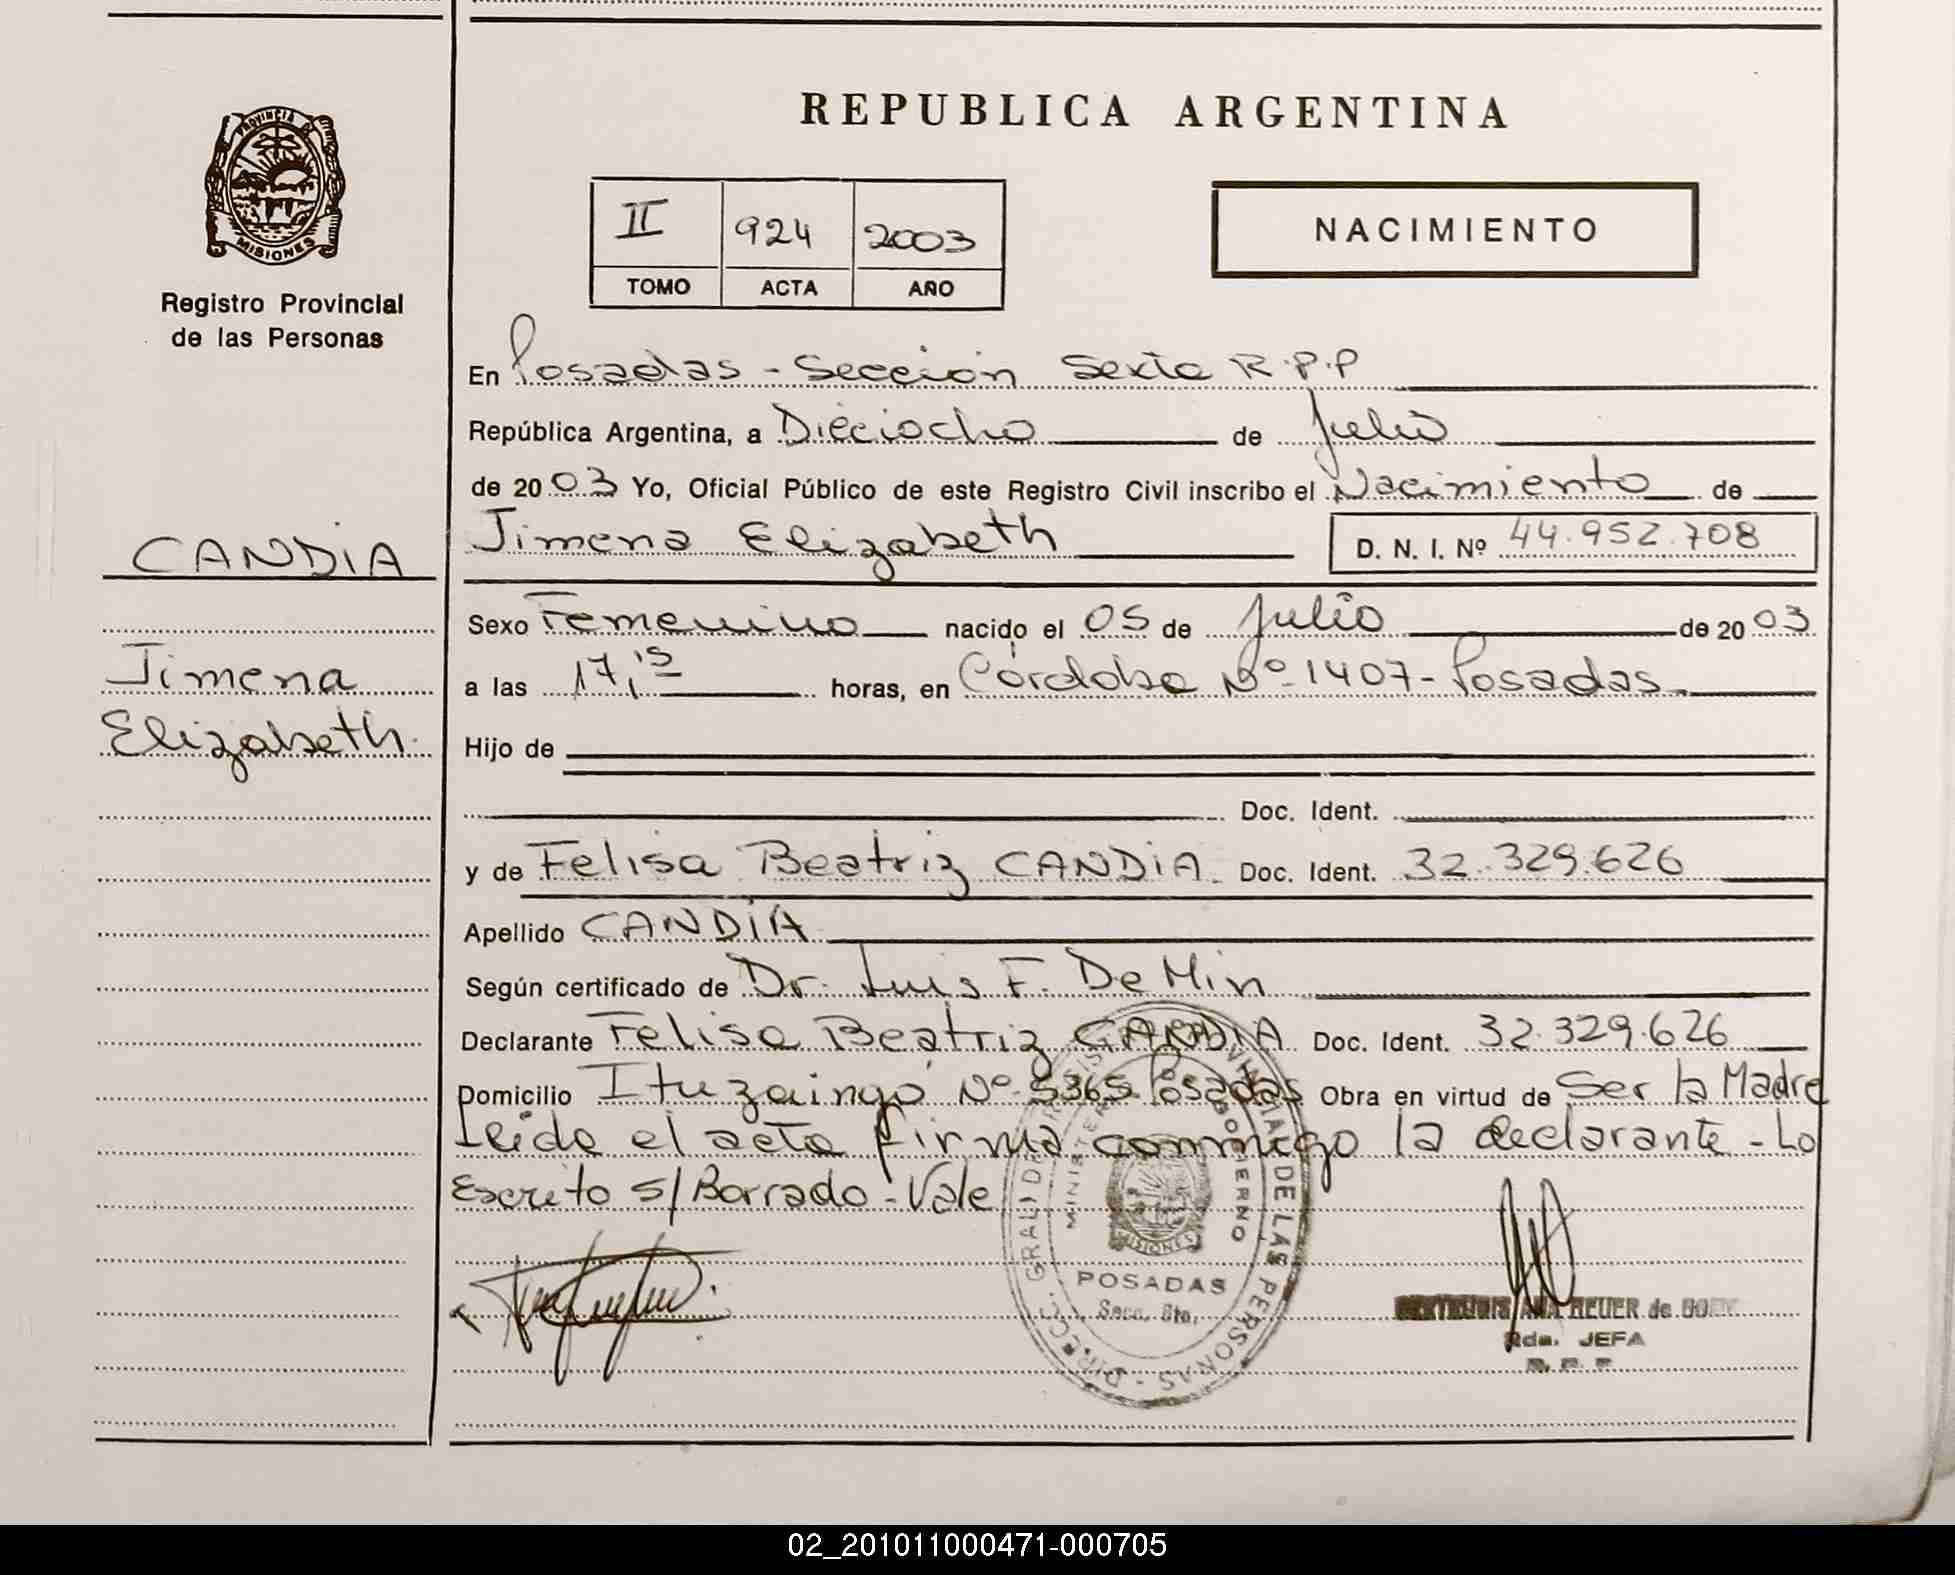 PROVINCIA DE
MISIONES
Registro Provincial
de las Personas
CANDIA
Jimena
Elizabeth
REPUBLICA ARGENTINA
II 924 2003
TOMO ACTA AÑO
NACIMIENTO
En Posadas - Sección Sexta R.P.P
República Argentina, a Dieciocho de Julio
de 2003 Yo, Oficial Público de este Registro Civil inscribo el Nacimiento de
Jimena Elizabeth D. N. I. Nº 44.952.708
Sexo Femenino nacido el 05 de Julio de 2003
a las 17,15 horas, en Córdoba Nº 1407 - Posadas
Hijo de
Doc. Ident.
y de Felisa Beatriz CANDIA Doc. Ident. 32.329.626
Apellido CANDIA
Según certificado de Dr. Luis F. De Min
Declarante Felisa Beatriz CANDIA Doc. Ident. 32.329.626
Domicilio Ituzaingó Nº 5365 Posadas Obra en virtud de Ser la Madre
Leida el acta firma conmigo la declarante - Lo
Escrito s/ Borrado - Vale
MINISTERIO GOBIERNO
DE LAS PERSONAS
MISIONES
POSADAS
Secc. 6ta.
REUER de
JEFA
02_201011000471-000705